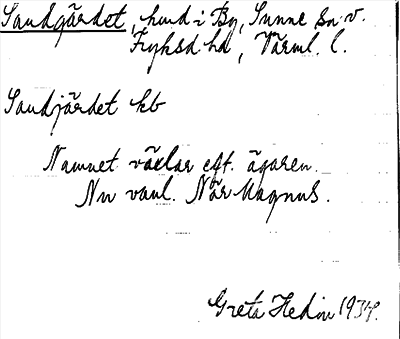 Sandgärdet, hmd i By, Sunne sn v.
Fryksd hd, Värml. l.
Sandjärdet hb
Namnet växlar eft. ägaren.
Nu vanl. När Magnus.
Greta Hedin 1934.